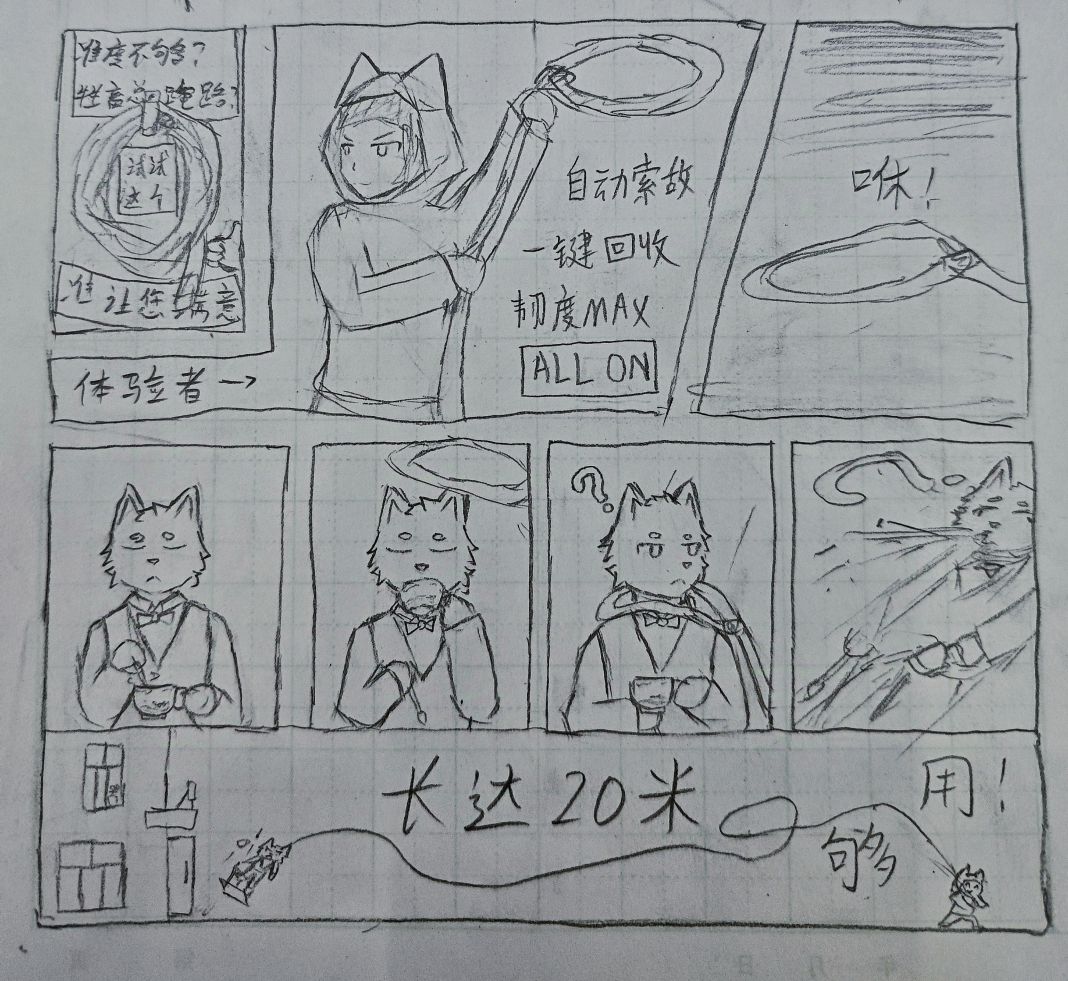 难度不够？
牲畜总跑路？
试试
这个
准让您满意
体验者→
自动索敌
一键回收
韧度MAX
ALL ON
咻！
?
长达20米
够用！